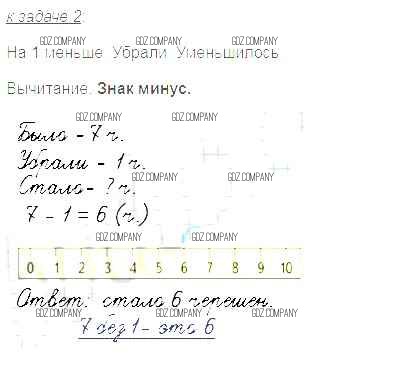 к задаче 2:
GDZ.COMPANY GDZ.COMPANY GDZ.COMPANY
На 1 меньше Убрали Уменьшилось
Вычитание. Знак минус.
GDZ.COMPANY GDZ.COMPANY
Было - 7 ч.
GDZ.COMPANY GDZ.COMPANY
Убрали - 1 ч.
Стало - ? ч.
GDZ.COMPANY GDZ.COMPANY
7 - 1 = 6 (ч.)
GDZ.COMPANY GDZ.COMPANY
0 1 2 3 4 5 6 7 8 9 10
Ответ: стало 6 черешен.
GDZ.COMPANY GDZ.COMPANY GDZ.COMPANY
7 без 1 - это 6